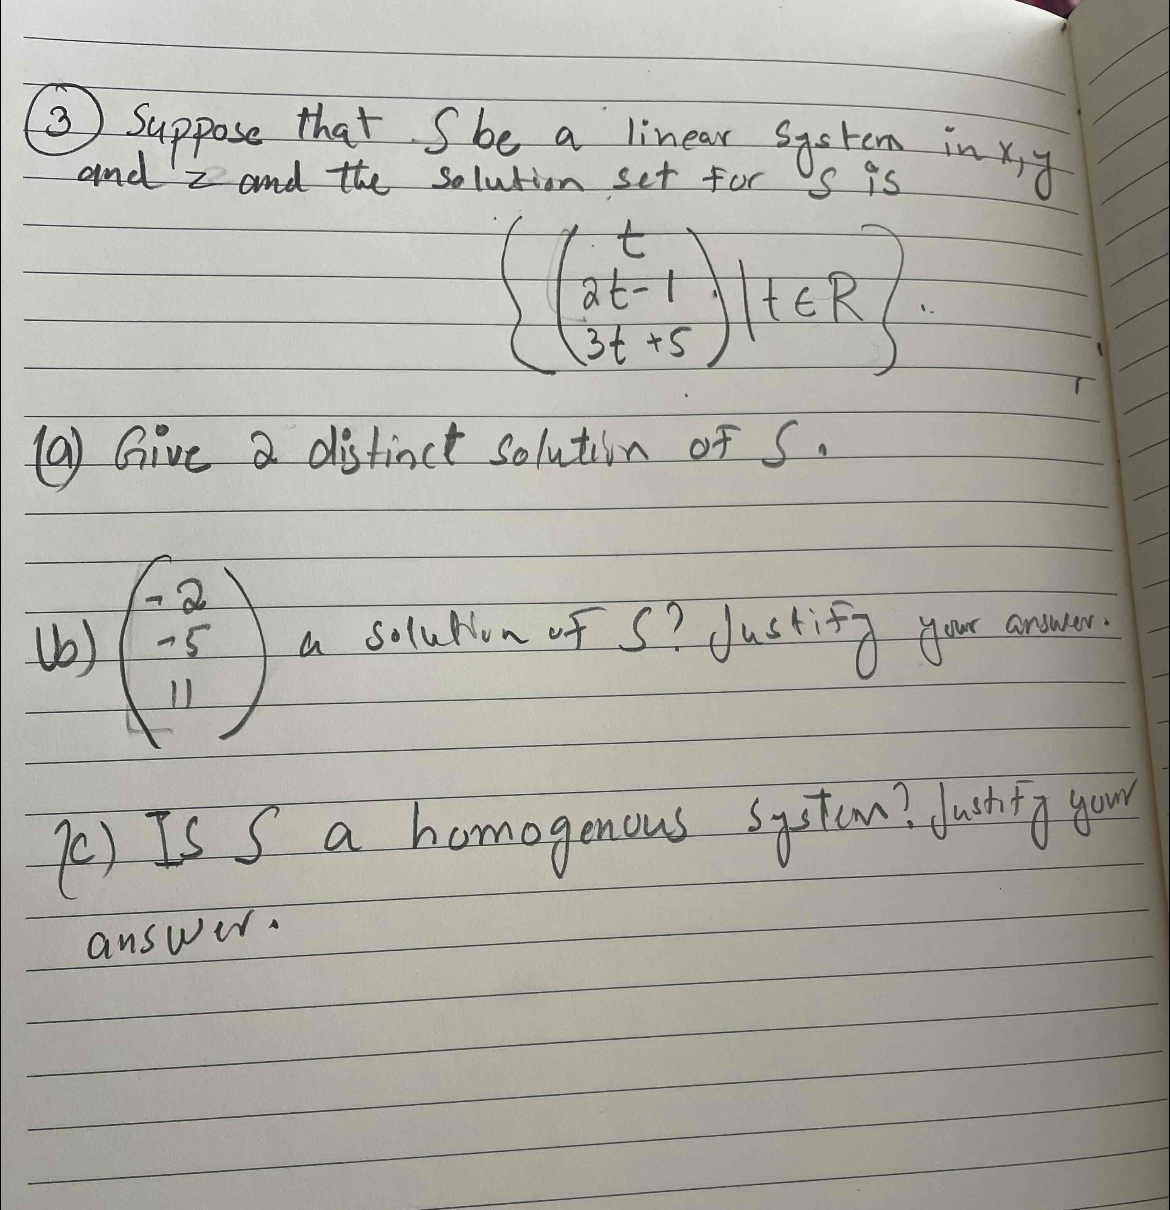 ③ Suppose that S be a linear system in x, y
and z and the solution set for S is
t
2t-1 | t ∈ R
3t +5
(a) Give 2 distinct solution of S.
-2
(b) -5 a solution of S? Justify your answer.
11
(c) Is S a homogenous system? Justify your
answer.